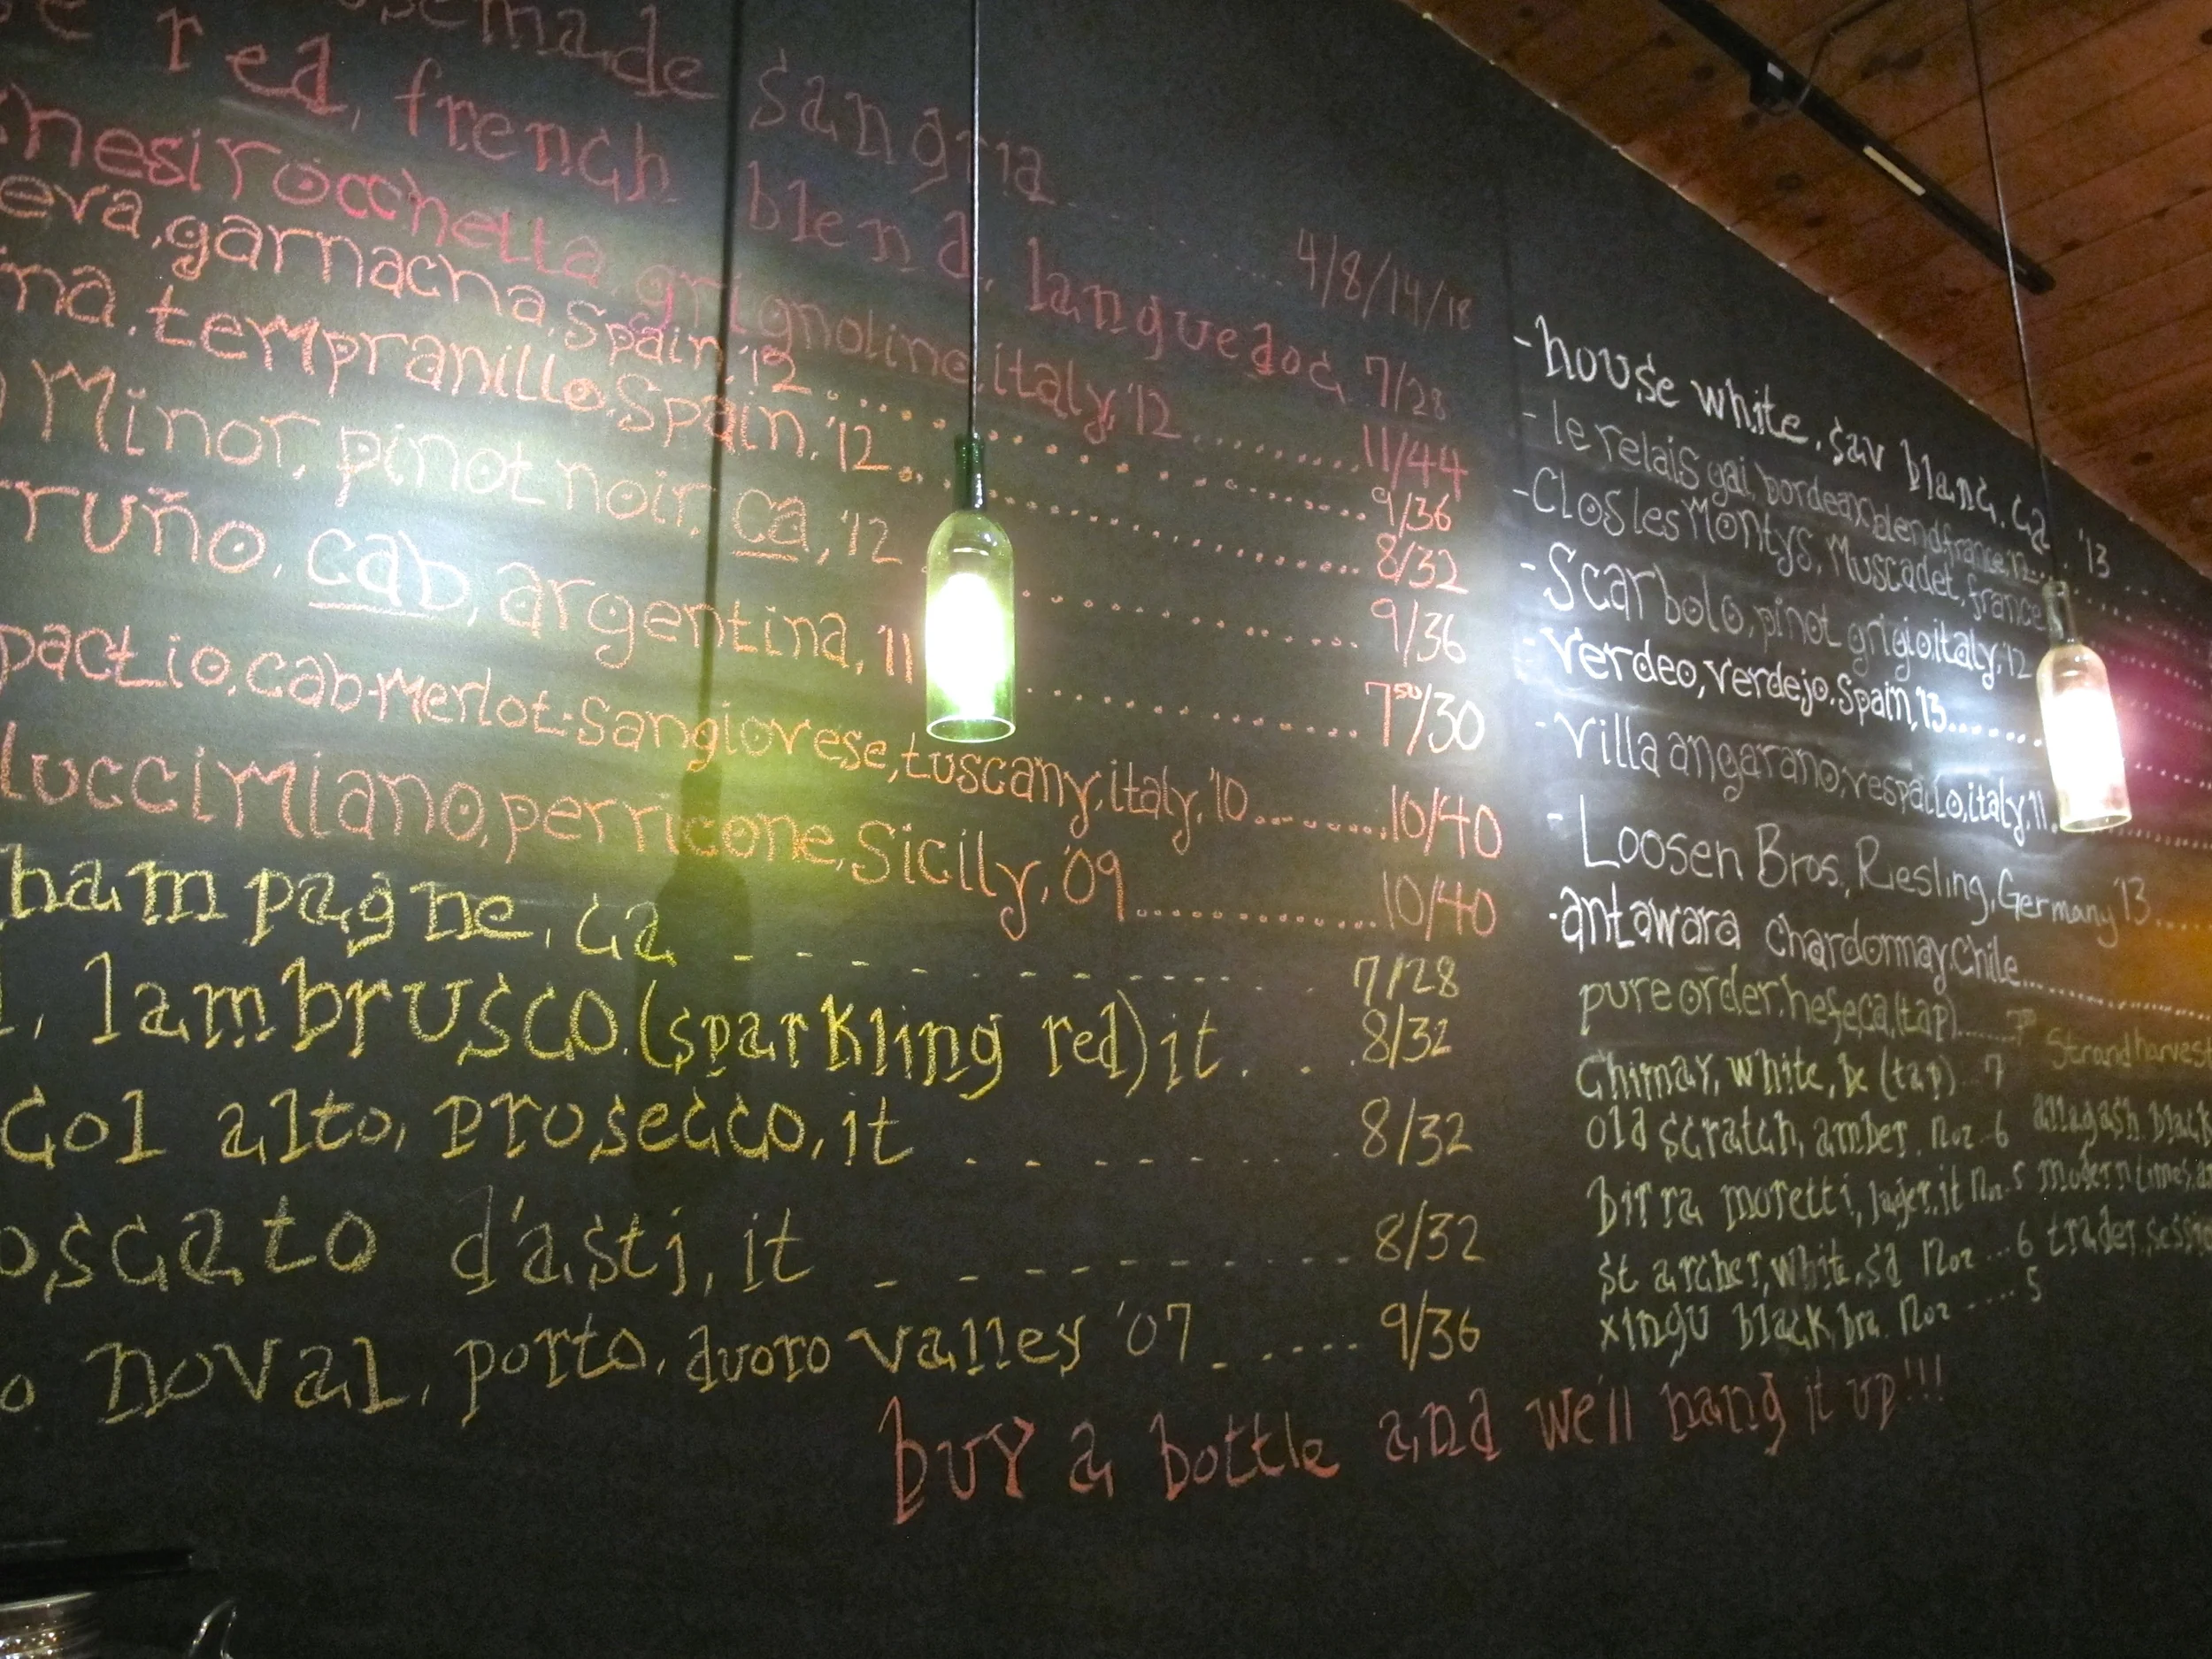 sangria ........ 4/8/14/18
red, french blend, languedoc, 7/28
rocchetta, grignolino, italy, '12 ........ 11/44
garnacha, Spain, '12 ........ 9/36
tempranillo, Spain, '12 ........ 8/32
Minor, pinot noir, ca, '12 ........ 9/36
cab, argentina, '11 ........ 7⁵⁰/30
cab-Merlot-Sangiovese, tuscany, italy, '10 ........ 10/40
perricone, Sicily, '09 ........ 10/40
hampagne, ca ........ 7/28
lambrusco, (sparkling red) it ... 8/32
col alto, prosecco, it ........ 8/32
oscato d'asti, it ........ 8/32
noval, porto, duoro valley '07 ...... 9/36
buy a bottle and we'll hang it up!!!
- house white, sav blanc, ca '13
- le relais gai, bordeaux blend, france, 12....
- Clos les Montys, Muscadet, france
- Scarbolo, pinot grigio, italy, '12
- Verdeo, verdejo, Spain, 13.......
- Villa angarano, vespaiolo, italy, '11
- Loosen Bros, Riesling, Germany '13....
- antawara chardonnay, Chile........
pure order, hefe, ca, (tap)..... 7⁵⁰ Strand harvest
Chimay, white, be (tap)..7
old scratch, amber, 12oz..6 allagash, black
birra moretti, lager, it 12oz.5 modern times,
st archer, white, sd 12oz...6 trader, session
xingu black, bra. 12oz.....5